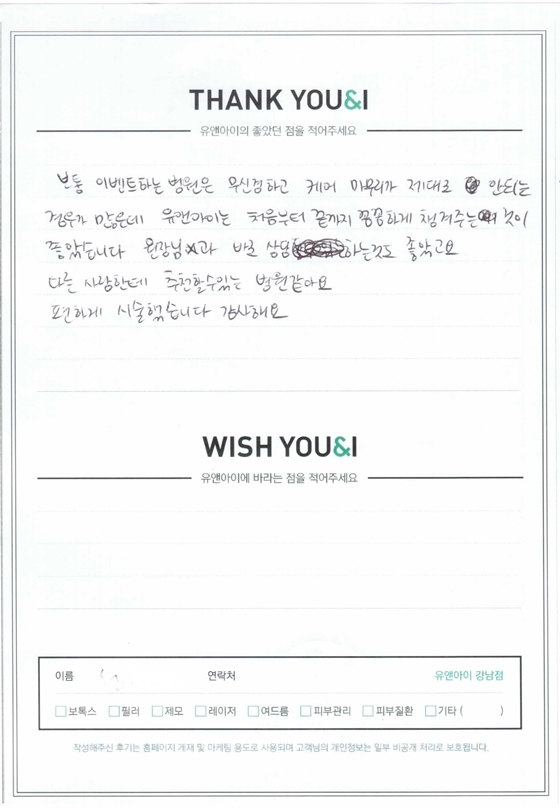 THANK YOU&I
유앤아이의 좋았던 점을 적어주세요
보통 이벤트하는 병원은 무신경하고 케어 마무리가 제대로 안되는
경우가 많은데 유앤아이는 처음부터 끝까지 꼼꼼하게 챙겨주는 것이
좋았습니다 원장님과 바로 상담하는것도 좋았고요
다른 사람한테 추천할수있는 병원같아요
편하게 시술했습니다 감사해요
WISH YOU&I
유앤아이에 바라는 점을 적어주세요
이름 연락처 유앤아이 강남점
보톡스 필러 제모 레이저 여드름 피부관리 피부질환 기타 ( )
작성해주신 후기는 홈페이지 게재 및 마케팅 용도로 사용되며 고객님의 개인정보는 일부 비공개 처리로 보호됩니다.